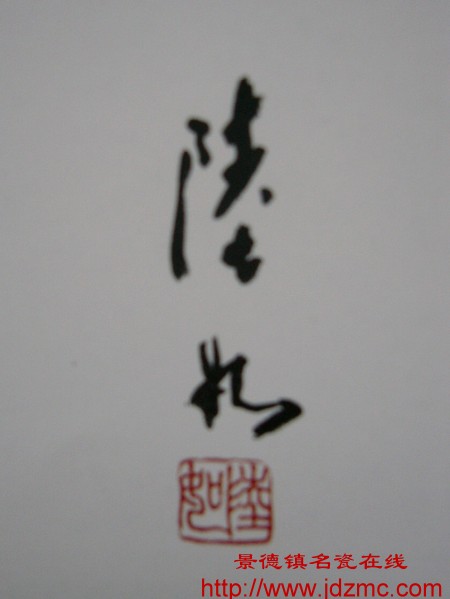 陸如
陸如
景德镇名瓷在线
http://www.jdzmc.com